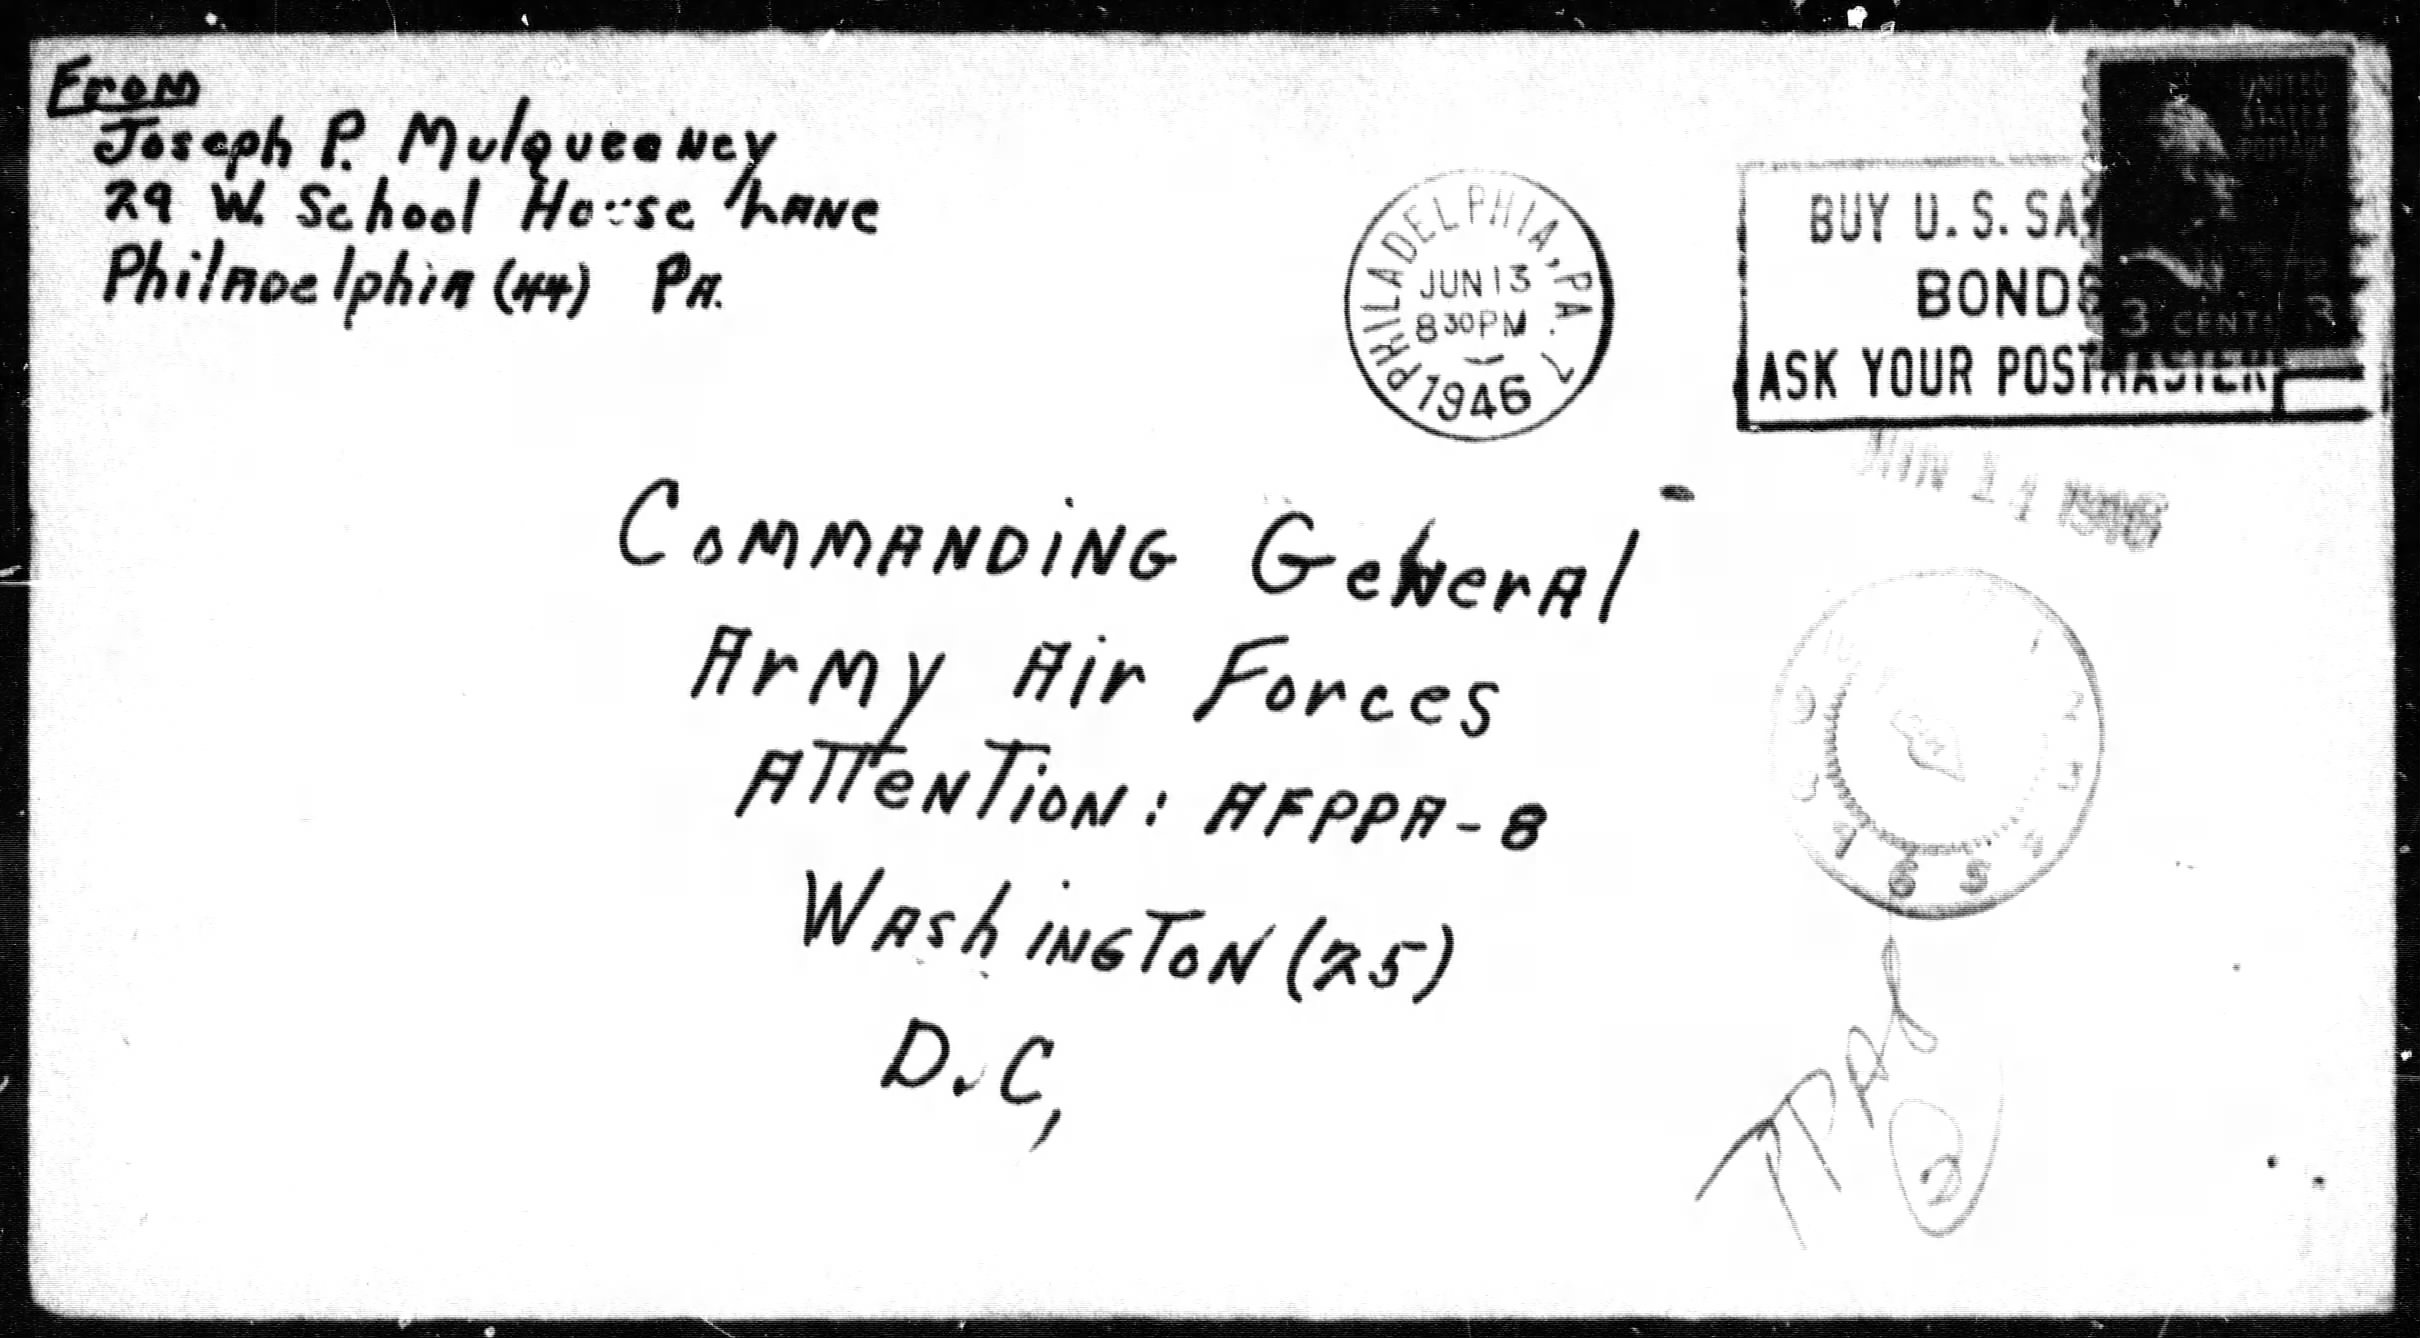 From
Joseph P. Mulqueeney
29 W. School House Lane
Philadelphia (44) Pa.
PHILADELPHIA, PA. 7
JUN 13
8 30 PM
1946
BUY U.S. SA
BONDS
ASK YOUR POSTMASTER
UNITED
STATES
POSTAGE
3 CENTS 3
JUN 14 1946
Commanding General
Army Air Forces
Attention: AFPPA-8
Washington (25)
D.C,
1
2
3
4
5
6
7
8
9
10
2